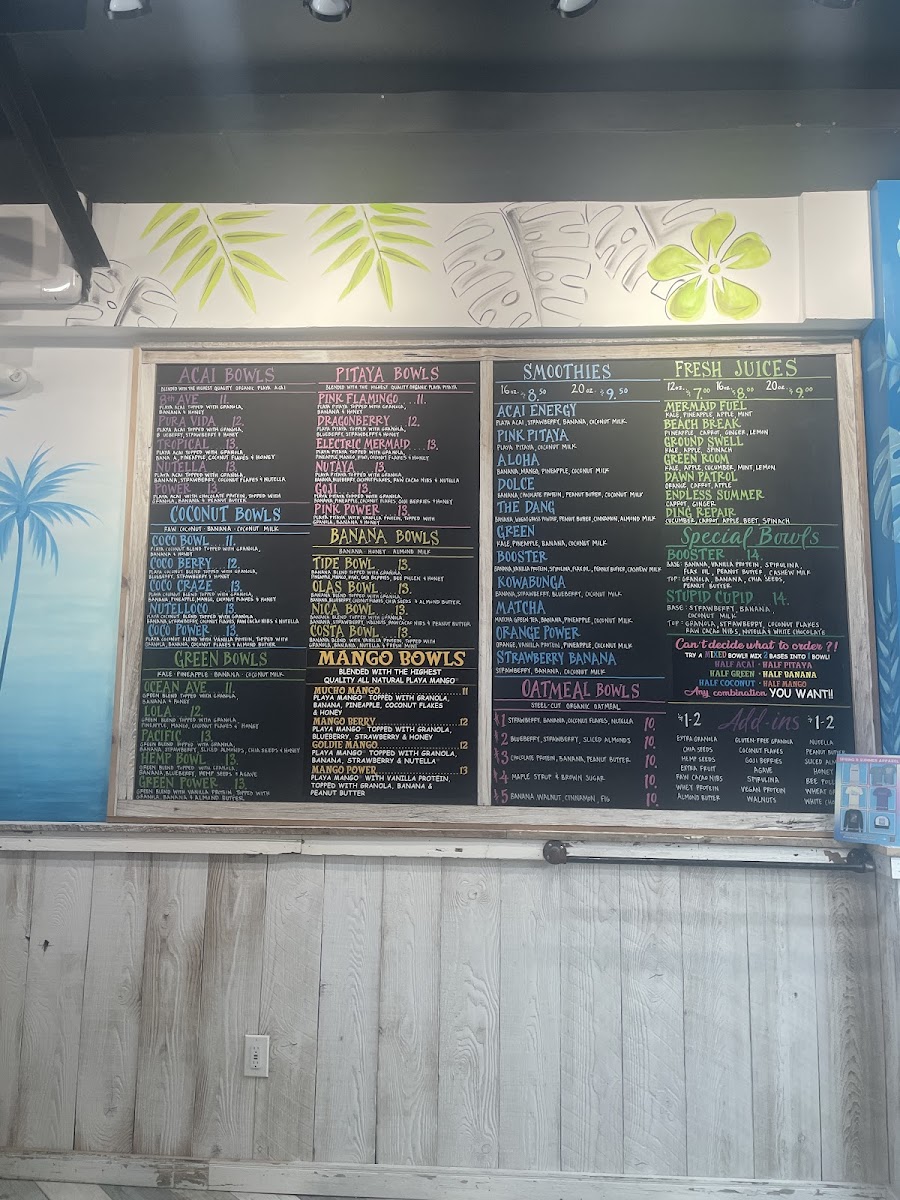 ACAI BOWLS
BLENDED WITH THE HIGHEST QUALITY ORGANIC PLAYA ACAI
8TH AVE 11.
PLAYA ACAI TOPPED WITH GRANOLA,
BANANA & HONEY
PURA VIDA 12.
PLAYA ACAI TOPPED WITH GRANOLA,
BLUEBERRY, STRAWBERRY & HONEY
TROPICAL 13.
PLAYA ACAI TOPPED WITH GRANOLA,
BANANA, PINEAPPLE, COCONUT FLAKES & HONEY
NUTELLA 13.
PLAYA ACAI TOPPED WITH GRANOLA,
BANANA, STRAWBERRY, COCONUT FLAKES & NUTELLA
POWER 13.
PLAYA ACAI WITH CHOCOLATE PROTEIN, TOPPED WITH
GRANOLA, BANANA & PEANUT BUTTER
COCONUT BOWLS
RAW COCONUT · BANANA · COCONUT MILK
COCO BOWL ..11.
PLAYA COCONUT BLEND TOPPED WITH GRANOLA,
BANANA & HONEY
COCO BERRY 12.
PLAYA COCONUT BLEND TOPPED WITH GRANOLA,
BLUEBERRY, STRAWBERRY & HONEY
COCO CRAZE 13.
PLAYA COCONUT BLEND TOPPED WITH GRANOLA,
BANANA, PINEAPPLE, MANGO, COCONUT FLAKES & HONEY
NUTELLOCO 13.
PLAYA COCONUT BLEND TOPPED WITH GRANOLA,
BANANA, STRAWBERRY, COCONUT FLAKES, RAW CACAO NIBS & NUTELLA
COCO POWER 13.
PLAYA COCONUT BLEND WITH VANILLA PROTEIN, TOPPED WITH
GRANOLA, BANANA, COCONUT FLAKES & ALMOND BUTTER
GREEN BOWLS
KALE · PINEAPPLE · BANANA · COCONUT MILK
OCEAN AVE 11.
GREEN BLEND TOPPED WITH GRANOLA,
BANANA & HONEY
LOLA 12.
GREEN BLEND TOPPED WITH GRANOLA,
PINEAPPLE, MANGO, COCONUT FLAKES & HONEY
PACIFIC 13.
GREEN BLEND TOPPED WITH GRANOLA,
BANANA, STRAWBERRY, SLICED ALMONDS, CHIA SEEDS & HONEY
HEMP BOWL 13.
GREEN BLEND TOPPED WITH GRANOLA,
BANANA, BLUEBERRY, HEMP SEEDS & AGAVE
GREEN POWER 13.
GREEN BLEND WITH VANILLA PROTEIN, TOPPED WITH
GRANOLA, BANANA & ALMOND BUTTER
PITAYA BOWLS
BLENDED WITH THE HIGHEST QUALITY ORGANIC PLAYA PITAYA
PINK FLAMINGO ..11.
PLAYA PITAYA TOPPED WITH GRANOLA,
BANANA & HONEY
DRAGONBERRY 12.
PLAYA PITAYA TOPPED WITH GRANOLA,
BLUEBERRY, STRAWBERRY & HONEY
ELECTRIC MERMAID....13.
PLAYA PITAYA TOPPED WITH GRANOLA,
PINEAPPLE, MANGO, KIWI, COCONUT FLAKES & HONEY
NUTAYA 13.
PLAYA PITAYA TOPPED WITH GRANOLA,
BANANA, BLUEBERRY, COCONUT FLAKES, RAW CACAO NIBS & NUTELLA
GOJI 13.
PLAYA PITAYA TOPPED WITH GRANOLA,
BANANA, PINEAPPLE, COCONUT FLAKES, GOJI BERRIES & HONEY
PINK POWER 13.
PLAYA PITAYA WITH VANILLA PROTEIN, TOPPED WITH
GRANOLA, BANANA & HONEY
BANANA BOWLS
BANANA · HONEY · ALMOND MILK
TIDE BOWL 13.
BANANA BLEND TOPPED WITH GRANOLA,
PINEAPPLE, MANGO, KIWI, GOJI BERRIES, BEE POLLEN & HONEY
OLAS BOWL 13.
BANANA BLEND TOPPED WITH GRANOLA,
BANANA, BLUEBERRY, COCONUT FLAKES, CHIA SEEDS & ALMOND BUTTER
NICA BOWL 13.
BANANA BLEND TOPPED WITH GRANOLA,
BANANA, STRAWBERRY, RAW CACAO NIBS & PEANUT BUTTER
COSTA BOWL 13.
BANANA BLEND TOPPED WITH GRANOLA,
MANGO BOWLS
BLENDED WITH THE HIGHEST
QUALITY ALL NATURAL PLAYA MANGO
MUCHO MANGO 11
PLAYA MANGO TOPPED WITH GRANOLA,
BANANA, PINEAPPLE, COCONUT FLAKES
& HONEY
MANGO BERRY 12
PLAYA MANGO TOPPED WITH GRANOLA,
BLUEBERRY, STRAWBERRY & HONEY
GOLDIE MANGO 12
PLAYA MANGO TOPPED WITH GRANOLA,
BANANA, STRAWBERRY & NUTELLA
MANGO POWER 13
PLAYA MANGO WITH VANILLA PROTEIN,
TOPPED WITH GRANOLA, BANANA &
PEANUT BUTTER
SMOOTHIES
16 oz. $8.50 20 oz. $9.50
ACAI ENERGY
PLAYA ACAI, STRAWBERRY, BANANA, COCONUT MILK
PINK PITAYA
PLAYA PITAYA, COCONUT MILK
ALOHA
BANANA, MANGO, PINEAPPLE, COCONUT MILK
DOLCE
BANANA, CHOCOLATE PROTEIN, PEANUT BUTTER, COCONUT MILK
THE DANG
PROTEIN, PEANUT BUTTER, CINNAMON, ALMOND MILK
GREEN
KALE, PINEAPPLE, BANANA, COCONUT MILK
BOOSTER
BANANA, VANILLA PROTEIN, SPIRULINA, FLAX OIL, PEANUT BUTTER, CASHEW MILK
KOWABUNGA
BANANA, STRAWBERRY, BLUEBERRY, COCONUT MILK
MATCHA
MATCHA GREEN TEA, BANANA, PINEAPPLE, COCONUT MILK
ORANGE POWER
ORANGE, VANILLA PROTEIN, PINEAPPLE, COCONUT MILK
STRAWBERRY BANANA
STRAWBERRY, BANANA, COCONUT MILK
OATMEAL BOWLS
STEEL-CUT ORGANIC OATMEAL
#1 STRAWBERRY, BANANA, COCONUT FLAKES, NUTELLA 10.
#2 BLUEBERRY, STRAWBERRY, SLICED ALMONDS 10.
#3 CHOCOLATE PROTEIN, BANANA, PEANUT BUTTER 10.
#4 MAPLE SYRUP & BROWN SUGAR 10.
#5 BANANA, WALNUT, CINNAMON, FIG 10.
FRESH JUICES
12oz. $7.00 16oz. $8.00 20oz. $9.00
MERMAID FUEL
KALE, PINEAPPLE, APPLE, MINT
BEACH BREAK
PINEAPPLE, CARROT, GINGER, LEMON
GROUND SWELL
KALE, APPLE, SPINACH
GREEN ROOM
KALE, APPLE, CUCUMBER, MINT, LEMON
DAWN PATROL
ORANGE, CARROT, APPLE
ENDLESS SUMMER
CARROT, GINGER
DING REPAIR
CUCUMBER, CARROT, APPLE, BEET, SPINACH
Special Bowls
BOOSTER 14.
BASE: BANANA, VANILLA PROTEIN, SPIRULINA
FLAX OIL, PEANUT BUTTER, CASHEW MILK
TOP: GRANOLA, BANANA, CHIA SEEDS,
PEANUT BUTTER
STUPID CUPID 14.
BASE: STRAWBERRY, BANANA,
COCONUT MILK
TOP: GRANOLA, STRAWBERRY, COCONUT FLAKES
RAW CACAO NIBS, NUTELLA & WHITE CHOCOLATE
Can't decide what to order?!
TRY A MIXED BOWL!! MIX 2 BASES INTO 1 BOWL!
HALF ACAI · HALF PITAYA
HALF GREEN · HALF BANANA
HALF COCONUT · HALF MANGO
Any combination YOU WANT!!
$1-2 Add-ins $1-2
EXTRA GRANOLA GLUTEN-FREE GRANOLA NUTELLA
CHIA SEEDS COCONUT FLAKES PEANUT
HEMP SEEDS GOJI BERRIES SLICED
EXTRA FRUIT AGAVE HONEY
RAW CACAO NIBS SPIRULINA BEE
WHEY PROTEIN VEGAN PROTEIN WHEAT
ALMOND BUTTER WALNUTS WHITE